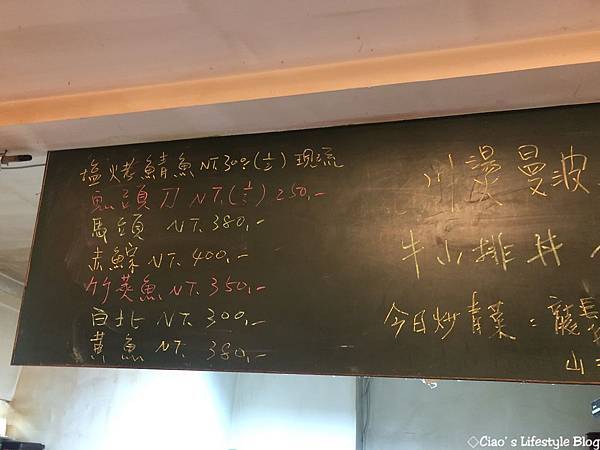 塩烤鯖魚 NT.300(½)現流
鬼頭刀 NT.(½)250,-
馬頭 NT.380,-
赤鯮 NT.400,-
竹筴魚 NT.350,-
白北 NT.300,-
黃魚 NT.380,-
川燙曼波
牛小排丼
今日炒青菜：龍
山
◇Ciao's Lifestyle Blog